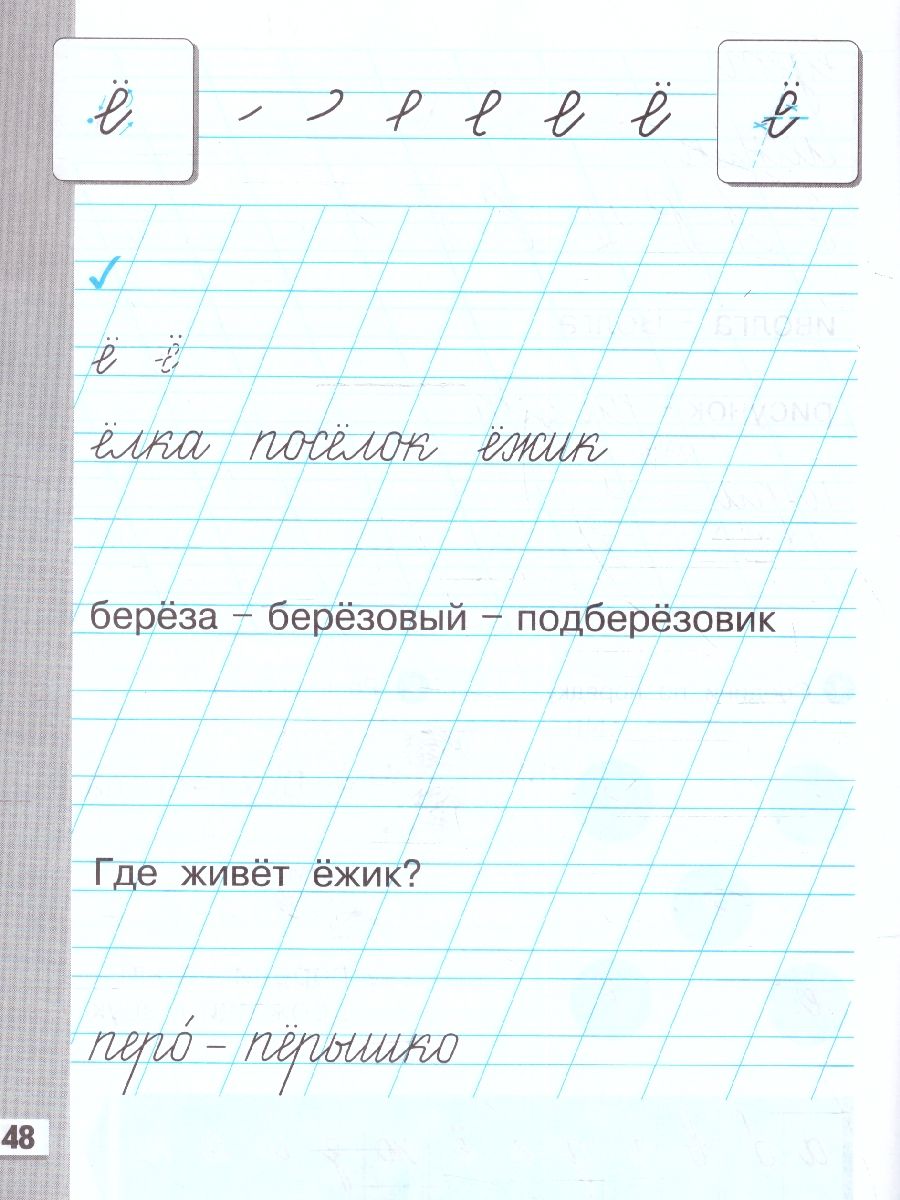 ё ё ё
ё ё
ёлка посёлок ёжик
берёза – берёзовый – подберёзовик
Где живёт ёжик?
перо́ – пёрышко
48